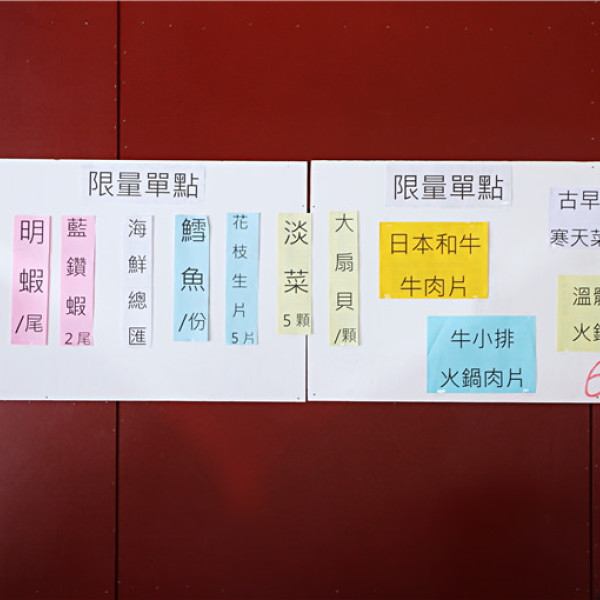 限量單點
明蝦/尾
藍鑽蝦2尾
海鮮總匯
鱈魚/份
花枝生片5片
淡菜5顆
大扇貝/顆
限量單點
日本和牛
牛肉片
牛小排
火鍋肉片
古早
寒天菜
溫體
火鍋